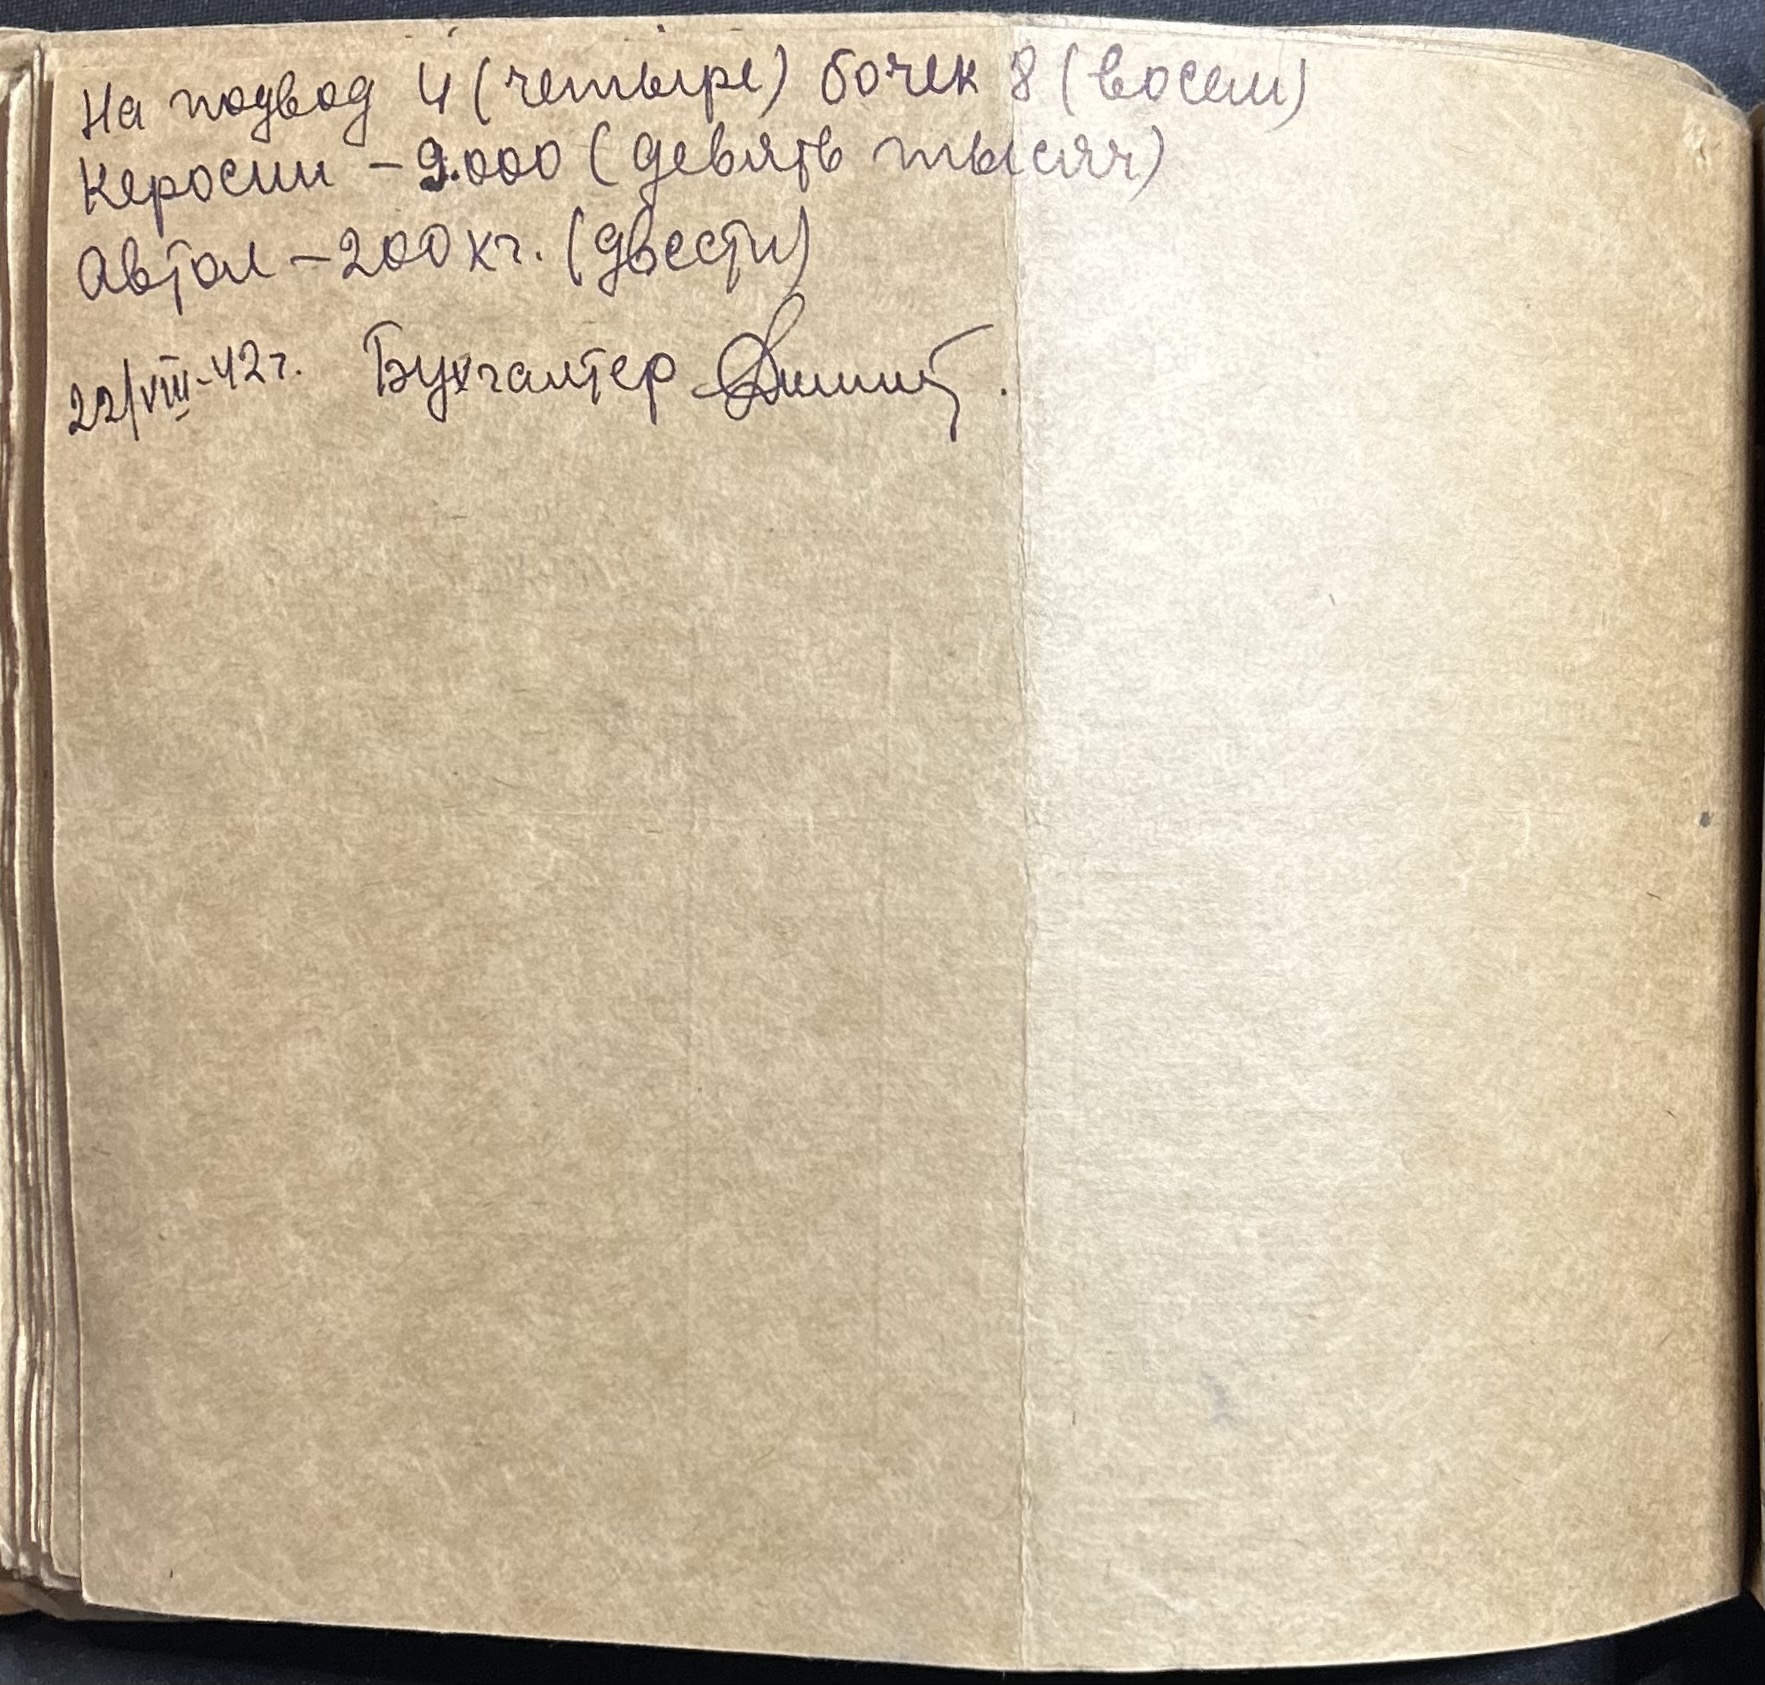 На подвод 4 (четыре) бочек 8 (восем)
Керосин - 9.000 (девять тысяч)
Автол - 200 кг. (двести)
22/VIII-42 г. Бухгалтер